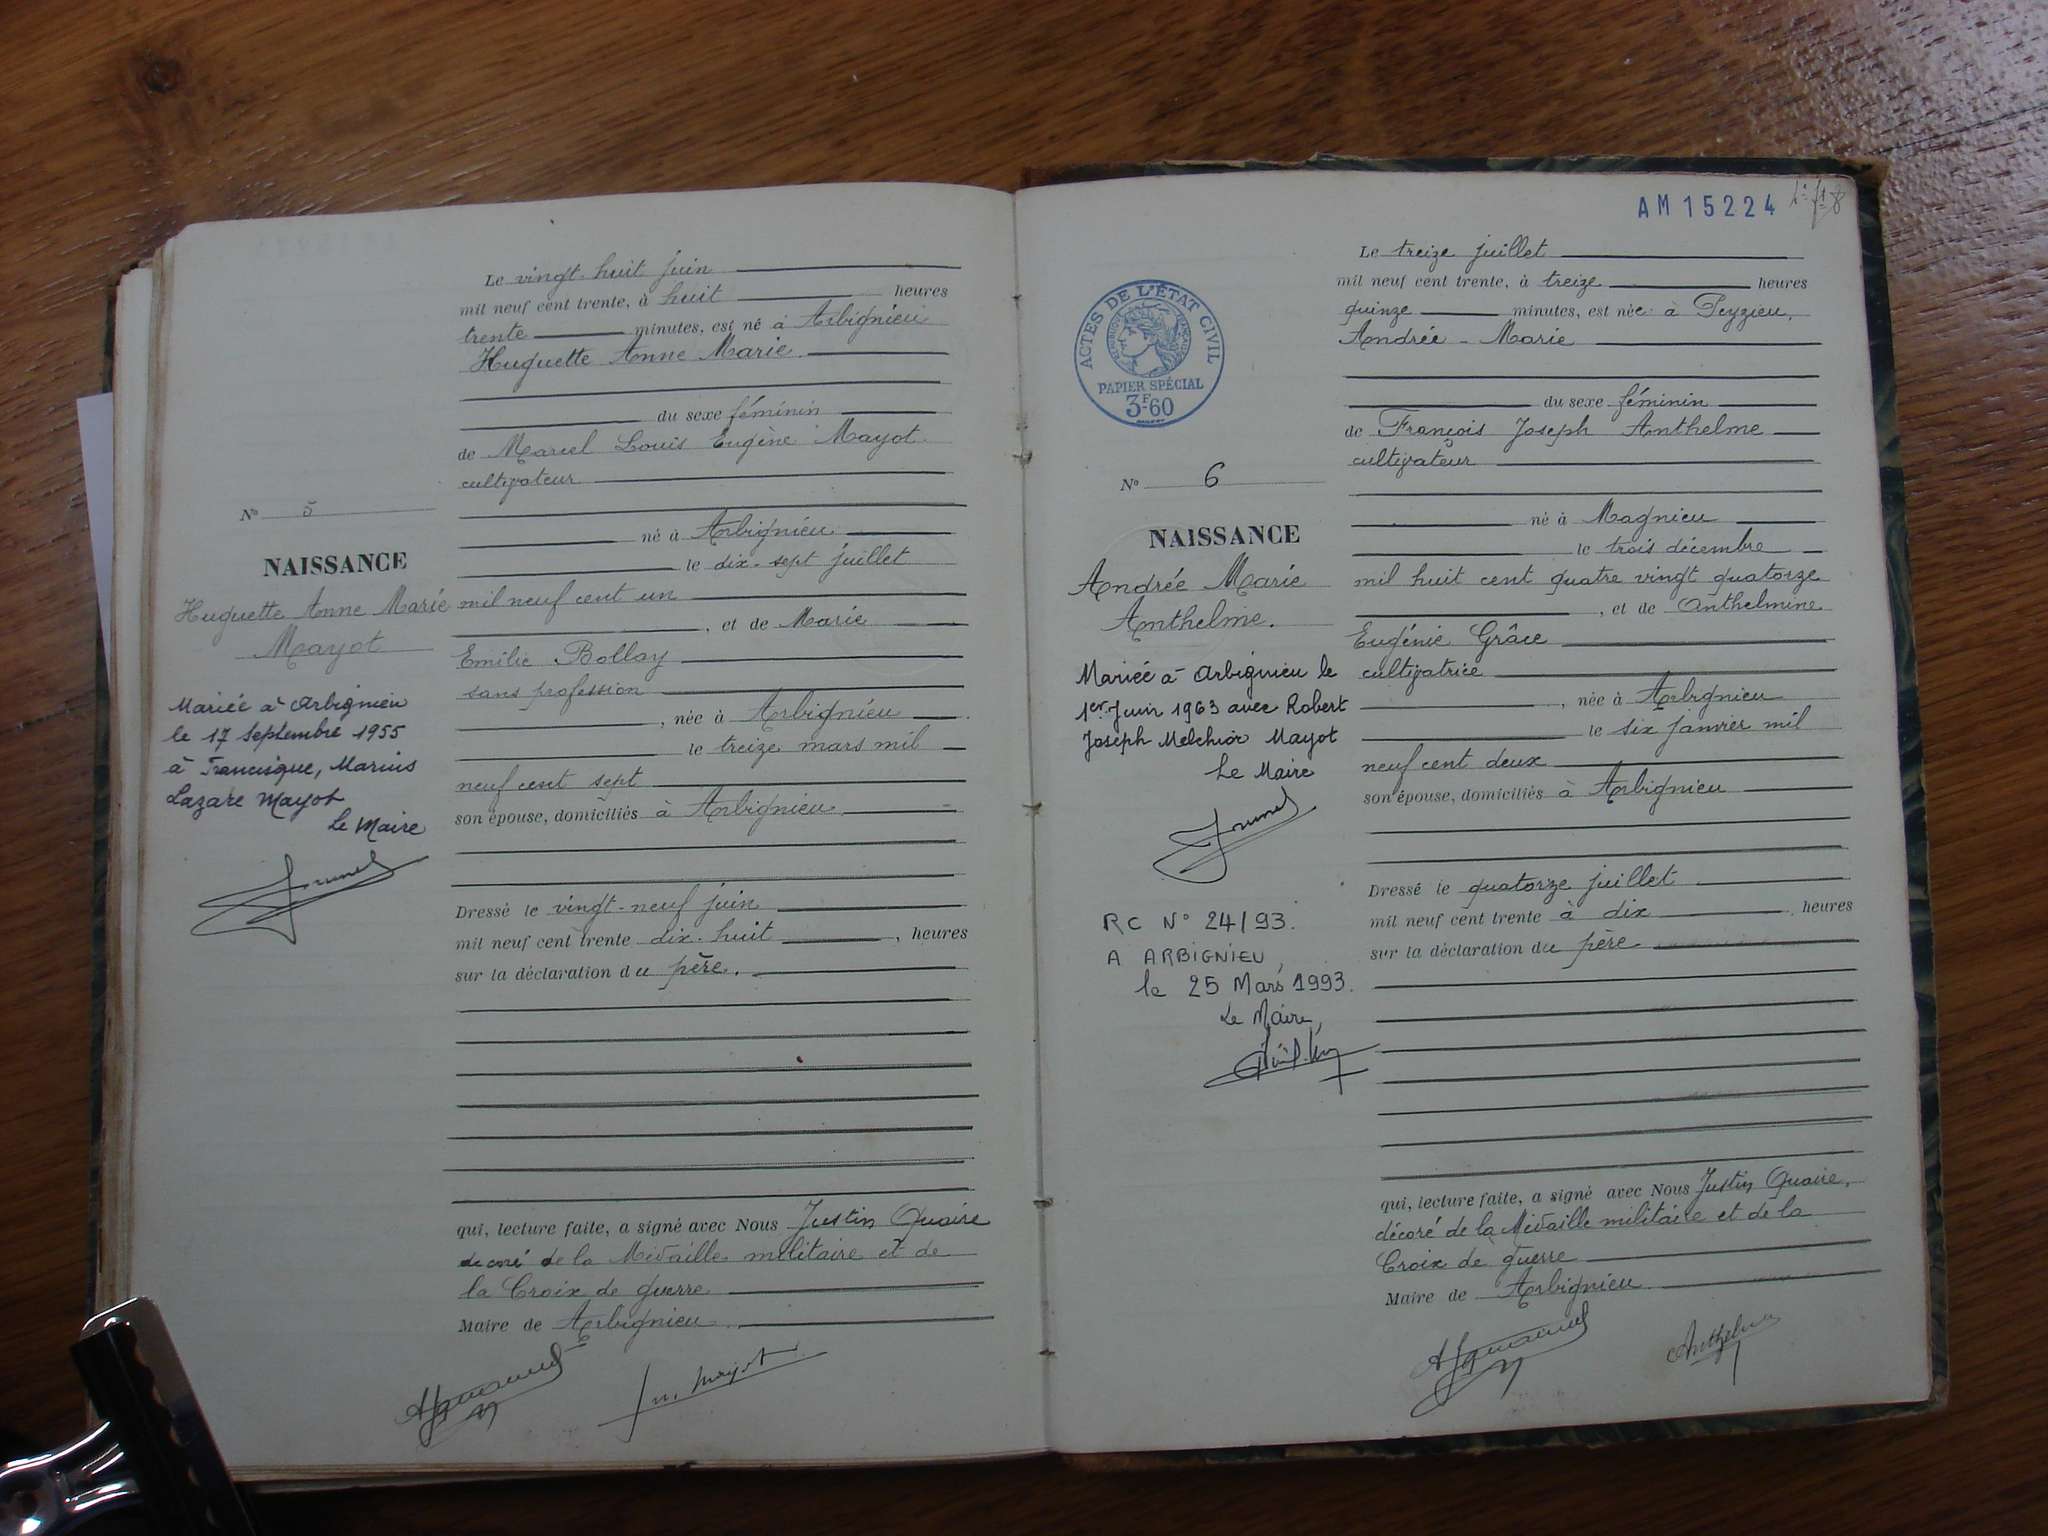 Le vingt-huit juin
mil neuf cent trente, à huit heures
trente minutes, est né à Arbignieu
Huguette Anne Marie
du sexe féminin
de Marcel Louis Eugène Mayot
cultivateur
né à Arbignieu
le dix-sept juillet
mil neuf cent un
, et de Marie
Emilie Bollay
sans profession
, née à Arbignieu
le treize mars mil
neuf cent sept
son épouse, domiciliés à Arbignieu
Dressé le vingt-neuf juin
mil neuf cent trente dix-huit, heures
sur la déclaration du père.
qui, lecture faite, a signé avec Nous Justin Quaire
décoré de la Médaille militaire et de
la Croix de guerre
Maire de Arbignieu
Nº 5
NAISSANCE
Huguette Anne Marie
Mayot
Mariée à Arbignieu
le 17 Septembre 1955
à Francisque, Marius
Lazare Mayot
Le Maire
AM 15224
ACTES DE L'ÉTAT CIVIL
RÉPUBLIQUE FRANÇAISE
PAPIER SPÉCIAL
3F·60
Nº 6
NAISSANCE
Andrée Marie
Anthelme.
Mariée à Arbignieu le
1er Juin 1963 avec Robert
Joseph Melchior Mayot
Le Maire
RC N° 24/93.
A ARBIGNIEU,
le 25 Mars 1993.
Le Maire,
Le treize juillet
mil neuf cent trente, à treize heures
quinze minutes, est née à Peyzieu,
Andrée - Marie
du sexe féminin
de François Joseph Anthelme
cultivateur
né à Magnieu
le trois décembre
mil huit cent quatre vingt quatorze
, et de Anthelmine
Eugénie Grâce
cultivatrice
, née à Arbignieu
le six janvier mil
neuf cent deux
son épouse, domiciliés à Arbignieu
Dressé le quatorze juillet
mil neuf cent trente à dix, heures
sur la déclaration du père
qui, lecture faite, a signé avec Nous Justin Quaire,
décoré de la Médaille militaire et de la
Croix de guerre
Maire de Arbignieu
Anthelme